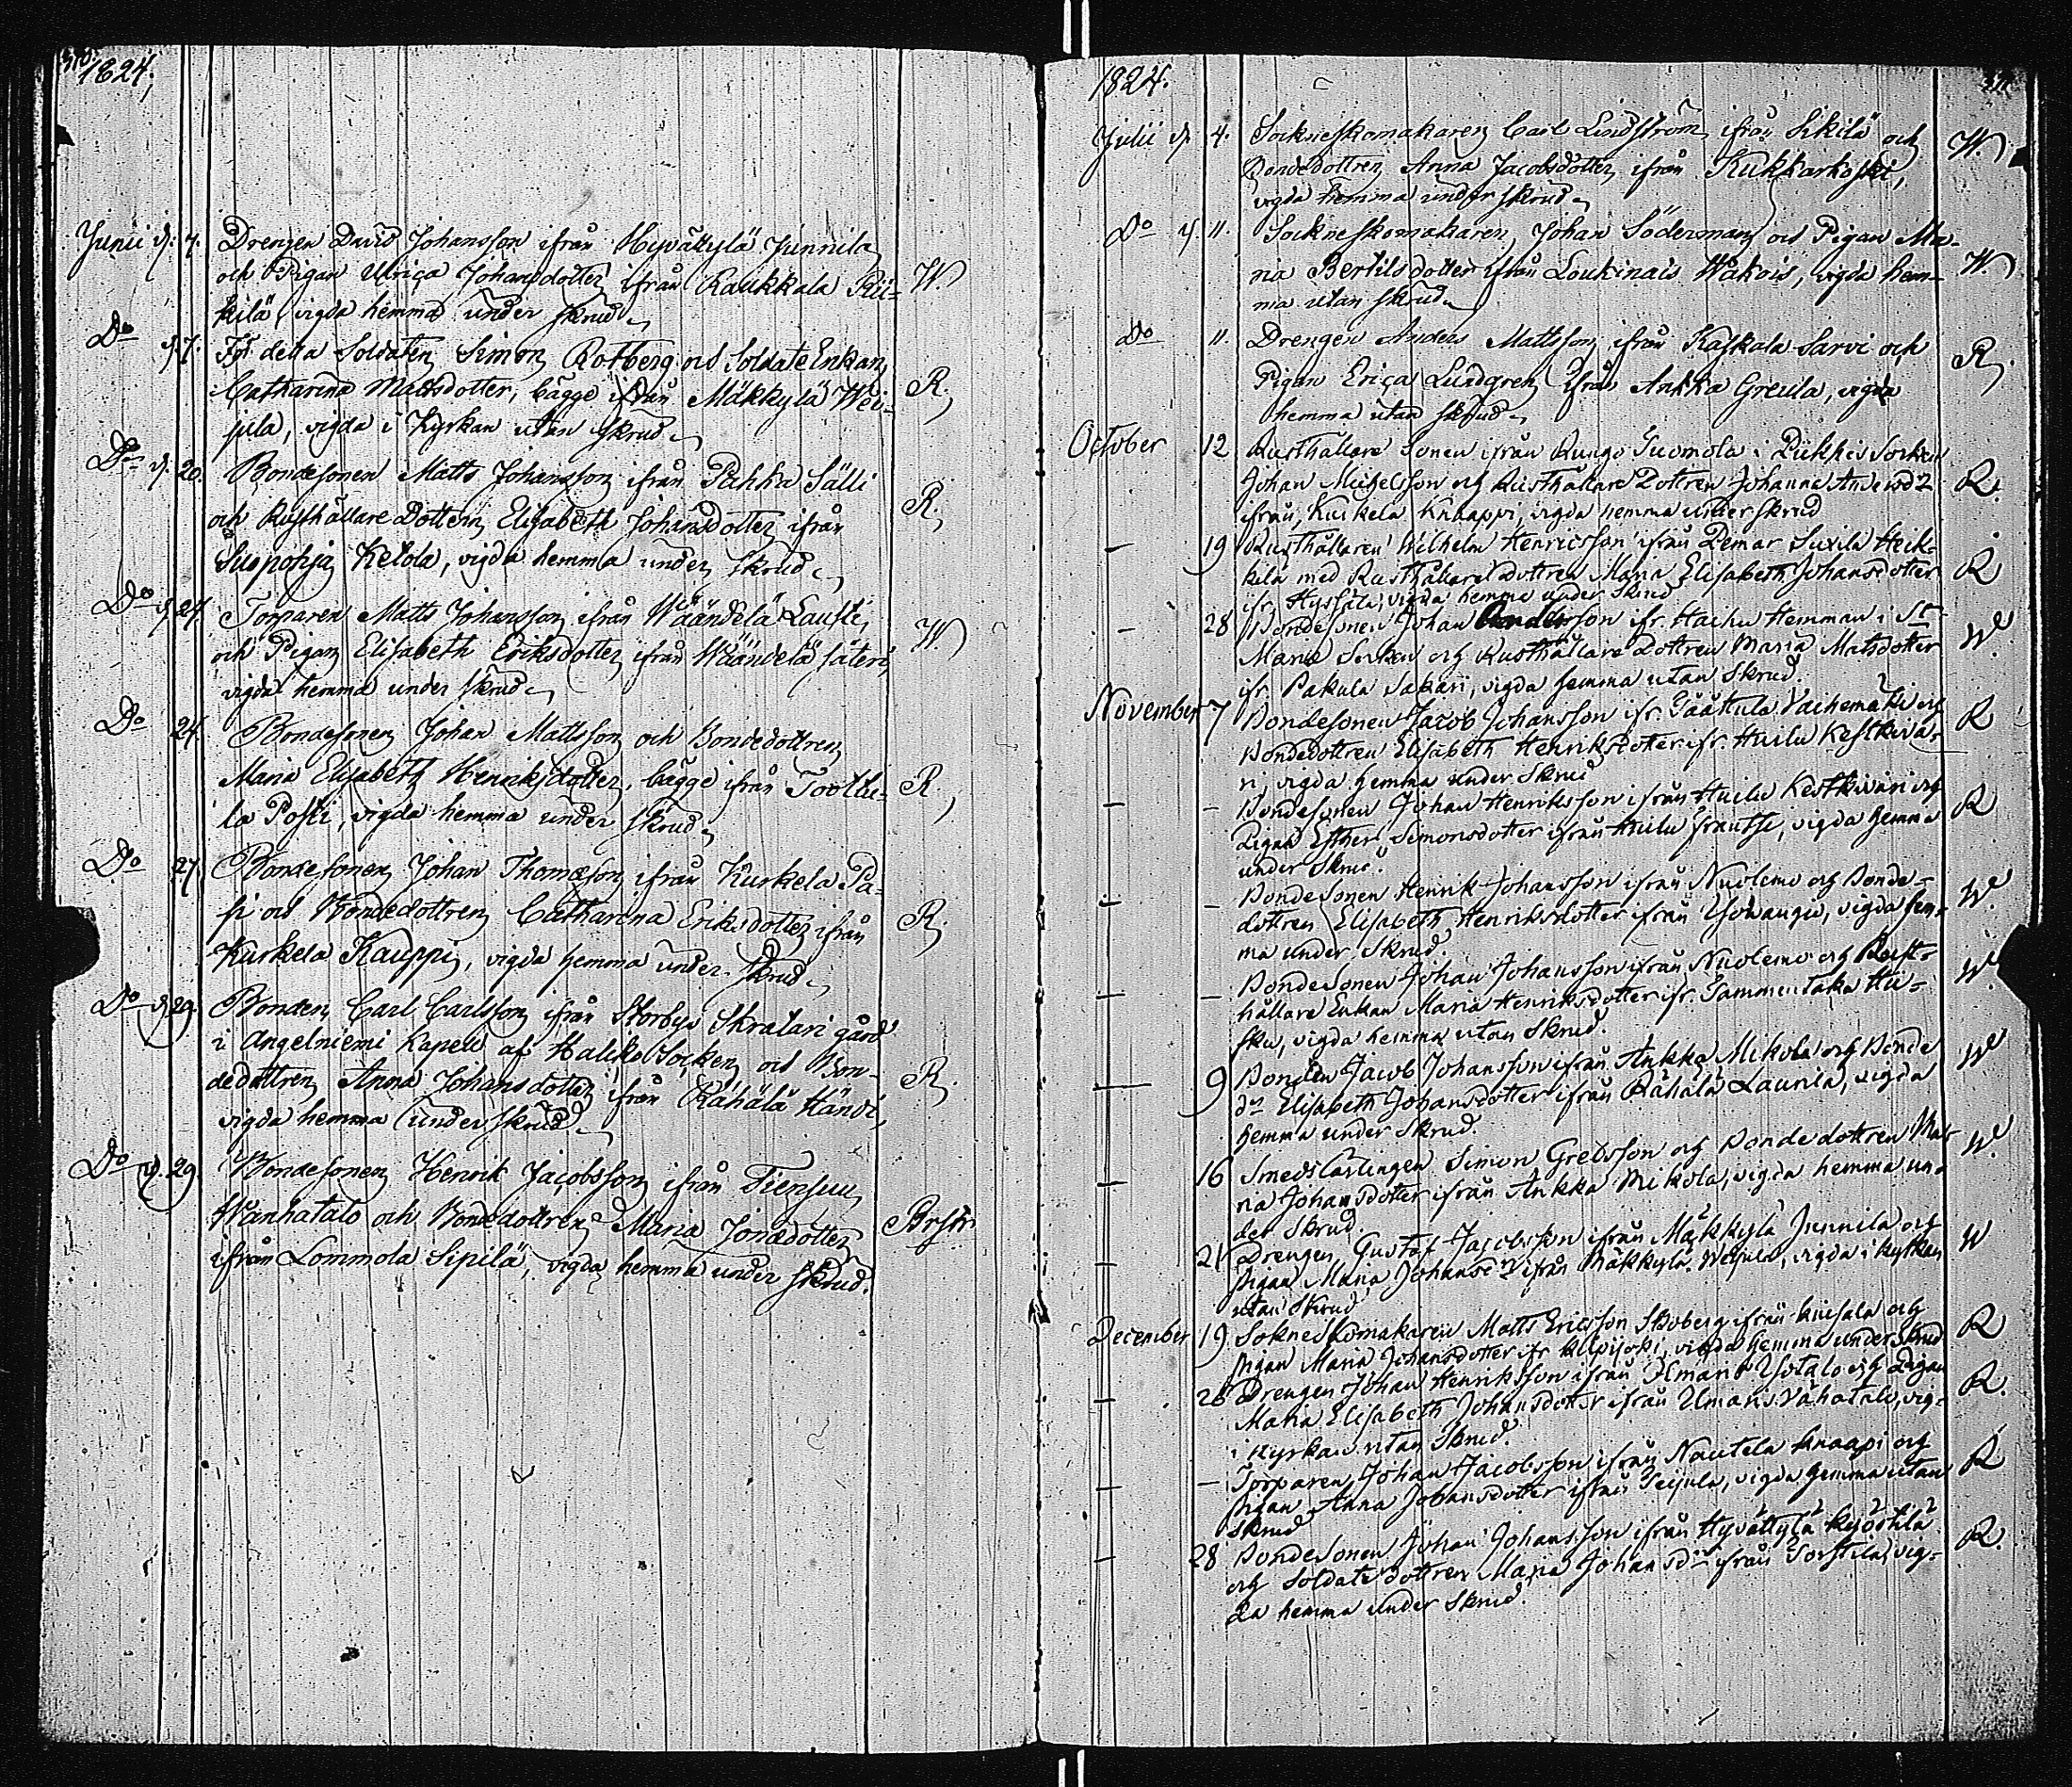 1824.
Junii d. 7. Drengen David Johansson ifrån Hyväkylä Junnila
och Pigan Ulrica Johansdotter ifrån Raukkala Pii- W.
kilä, vigda hemma under skrud.
Do d. 7. För detta Soldaten Simon Rotberg och SoldateEnkan
Catharina Mattsdotter, bägge ifrån Mäkkylä Wei- R.
jula, vigda i Kyrkan utan skrud.
Do d. 20. Bondesonen Matts Johansson ifrån Pahka Sälli
och Rusthållare Dottern Elisabeth Johansdotter ifrån R.
Suopohja Ketola, vigda hemma under skrud.
Do d. 24. Torparen Matts Johansson ifrån Wäändelä Lausti,
och Pigan Elisabeth Eriksdotter ifrån Wäändelä säteri, W.
vigda hemma under skrud.
Do 24. Bondesonen Johan Mattsson och Bondedottren
Maria Elisabeth Henriksdotter, bägge ifrån Tootlu- R.
la Posti, vigda hemma under skrud.
Do 27. Bondesonen Johan Thomasson ifrån Kurkela Pa-
si och Bondedottren Catharina Eriksdotter ifrån R.
Kurkela Kauppi, vigda hemma under skrud.
Do d. 29. Bonden Carl Carlsson ifrån Storby Skralari gård
i Angelniemi Kapell af Haliko Socken och Bon-
dedottren Anna Johansdotter ifrån Rähälä Händi, R.
vigda hemma under skrud.
Do d. 29. Bondesonen Henrik Jacobsson ifrån Tiensuu
Wanhatalo och Bondedottren Maria Jonædotter
ifrån Lommola Sipilä, vigda hemma under skrud.
1824.
Julii d. 4. Sockneskomakaren Carl Lindström ifrån Sikilä och W.
Bondedottren Anna Jacobsdotter ifrån Kukkarkoski,
vigda hemma under skrud.
Do d. 11. Sockneskomakaren Johan Söderman och Pigan Ma-
ria Bertilsdotter ifrån Loukinais Wäkois, vigda hem- W.
ma utan skrud.
Do 11. Drengen Anders Mattsson ifrån Kaskala Sarvi och
Pigan Erica Lindgren ifrån Ankka Greula, vigda R.
hemma utan skrud.
October 12 Rusthållare Sonen ifrån Rungo Tuomola i Piikkis Socken
Johan Michelsson och Rusthållare Dottren Johanna Andersdr R.
ifrån Kurkela Knaappi, vigda hemma under skrud
— 19 Rusthållaren Wilhelm Henricsson ifrån Pemar Suxila Heik-
kilä med Rusthållare Dottren Maria Elisabeth Johansdotter R
ifr. vigda hemma under skrud
— 28 Bondesonen Johan Andersson ifr. Hemman i St
Marie Socken och Rusthållare Dottren Maria Matsdotter W.
ifr. Pakula Sakari, vigda hemma utan skrud.
November 7 Bondesonen Jacob Johansson ifr. Vachemäki och R
Bondedottren Elisabeth Henriksdotter ifr. Huilu Keskivä-
ri, vigda hemma under Skrud
— — Bondesonen Johan Henriksson ifrån Huilu Keskiväri och R
Pigan Esther Simonsdotter ifrån Huilu Frantsi, vigda hemma
under Skrud.
— — Bondesonen Henrik Johansson ifrån Nuolemo och Bonde- W.
dottren Elisabeth Henriksdotter ifrån vigda hem-
ma under Skrud.
— — Bondesonen Johan Johansson ifrån Nuolemo och Rust- W.
hållare Enkan Maria Henriksdotter ifr. Tammentaka
vigda hemma utan Skrud.
— 9 Bonden Jacob Johansson ifrån Ankka Mikola och Bonde W
dr Elisabeth Johansdotter ifrån Rähälä Launila, vigda
hemma under Skrud.
— 16 Smeds Simon och Bonde dottren Ma- W.
ria Johansdotter ifrån Ankka Mikola, vigda hemma un-
der Skrud.
— 21 Drengen Gustaf Jacobsson ifrån Mäkkylä Junnila och W
Pigan Maria Johansdr ifrån Mäkkylä Weijula, vigda i Kyrkan
utan Skrud
December 19 Sokneskomakaren Matts Ericsson Skoberg ifrån och R
Pigan Maria Johansdotter ifr vigda hemma under Skrud
— 26 Drengen Johan Henriksson ifrån Ilmaris Yötalo och Pigan R.
Maria Elisabeth Johansdotter ifrån Ilmaris Vähätalo, vig-
i Kyrkan utan Skrud.
— — Torparen Johan Jacobsson ifrån Nautela Knaapi och R
Pigan Anna Johansdotter ifrån vigda hemma utan
Skrud
— 28 Bondesonen Johan Johansson ifrån Hyvättylä Kyöstilä R.
och Soldate dottren Maria Johansdr ifrån vig-
da hemma under Skrud.